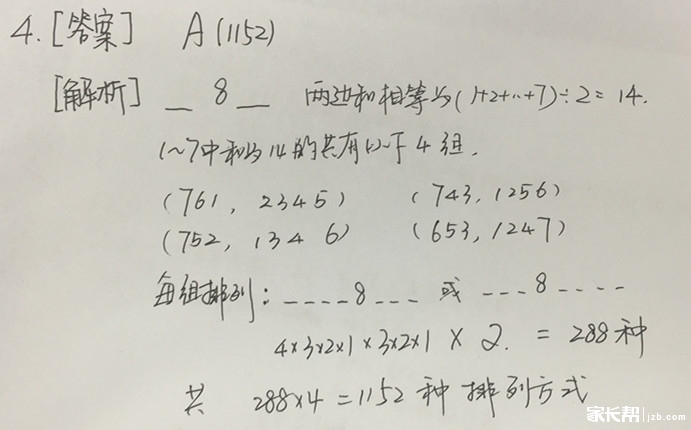 4. [答案] A (1152)
[解析] _ 8 _ 两边和相等为(1+2+…+7)÷2=14.
1~7中和为14的共有以下4组.
(761, 2345) (743, 1256)
(752, 1346) (653, 1247)
每组排列: _ _ _ _ 8 _ _ _ 或 _ _ _ 8 _ _ _ _
4×3×2×1×3×2×1 × 2. = 288种
共 288×4=1152种排列方式
家长帮 jzb.com